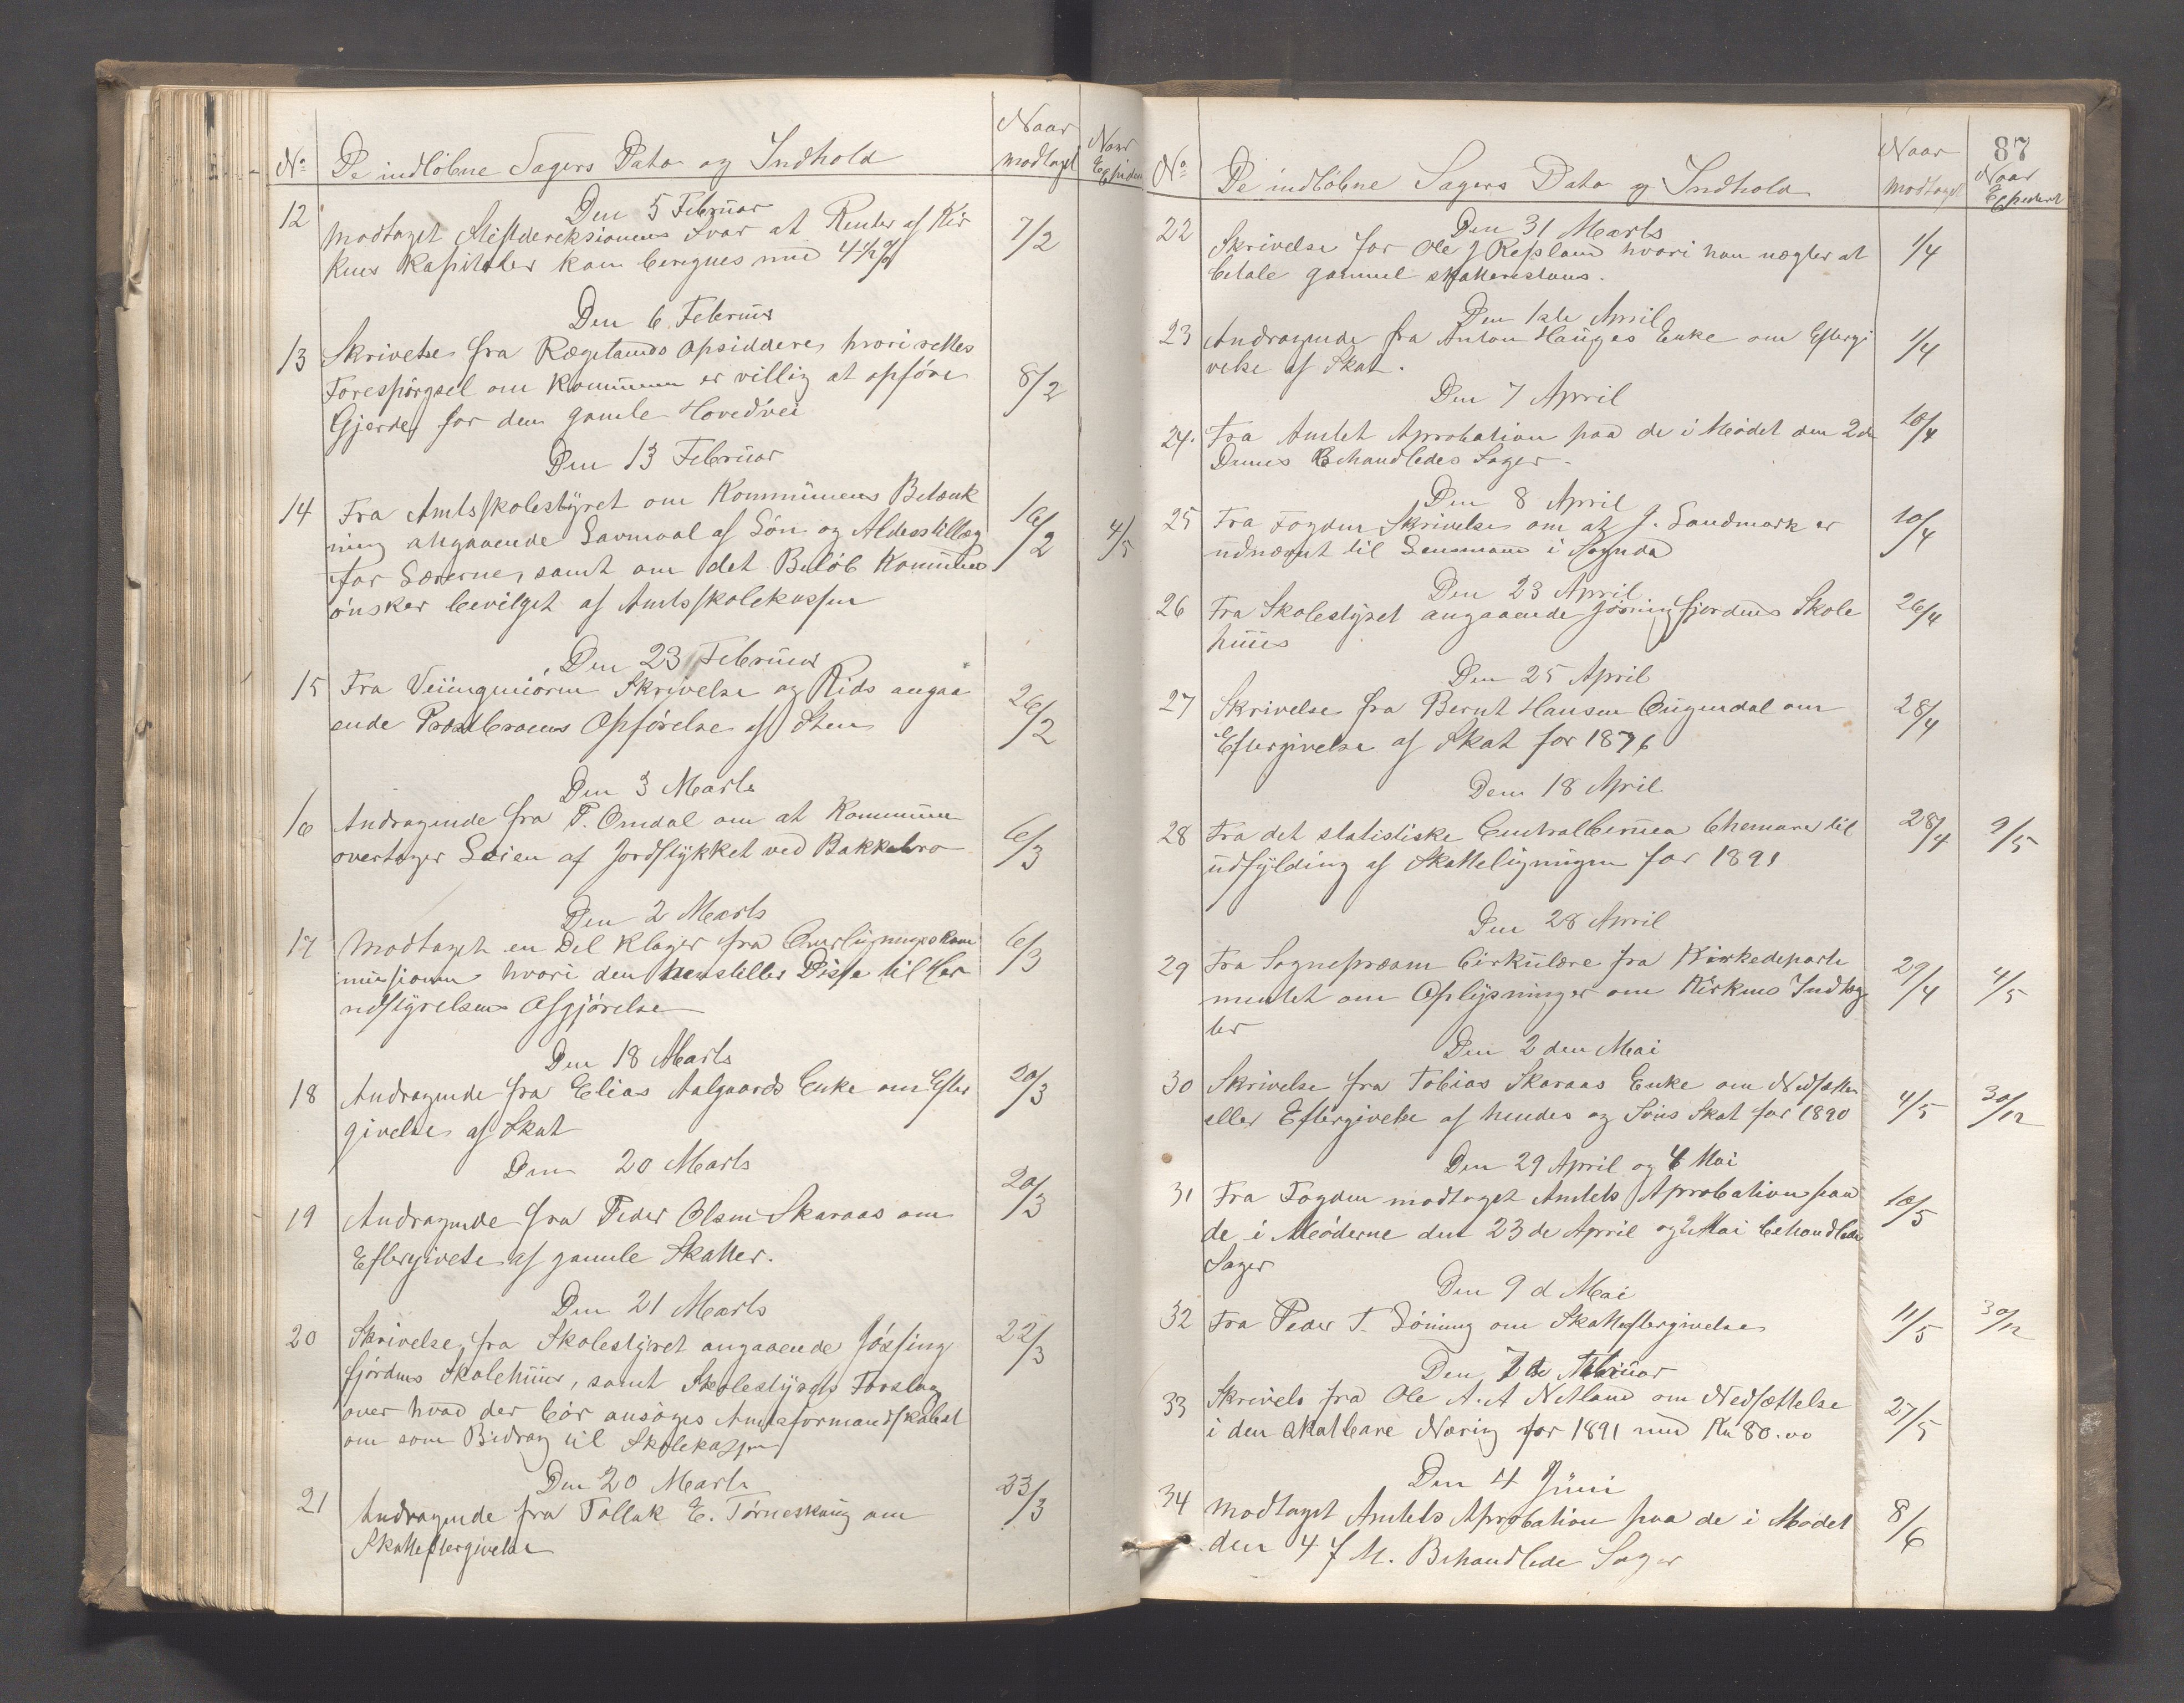 No De indløbne Sagers Dato og Indhold Naar modtaget Naar Expideret
Den 5 Februar
12 Modtaget Stiftdireksionens Svar at Renter af Kir
kens Kapitaler kan beregnes med 4½% 7/2
Den 6 Februar
13 Skrivelse fra Rægelands Opsiddere, hvori rettes
Forespørgsel om Kommunen er villig at opføre 8/2
Gjerder for den gamle Hovedvei
Den 13 Februar
14 Fra Amtsskolestyret om Kommunens Betænk
ning angaaende Lavmaal af Løn og Alderstillæg 16/2 4/5
for Lærerne, samt om det Beløb Kommunen
ønsker bevilget af Amtsskolekassen
Den 23 Februar
15 Fra Veiingeniøren Skrivelse og Rids angaa
ende Prostbroens Opførelse af Sten 26/2
Den 3 Marts
16 Andragende fra P. Omdal om at Kommunen
overtager Leien af Jordstykket ved Bakkebro 6/3
Den 2 Marts
17 Modtaget en Del Klager fra Overligningskom 6/3
missionen hvori den henstiller Disse til Her
redstyrelsens Afgjørelse
Den 18 Marts
18 Andragende fra Elias Aalgaards Enke om Efter 20/3
givelse af Skat
Den 20 Marts
19 Andragende fra Peder Olsen Skaraas om 20/3
Eftergivelse af gamle Skatter.
Den 21 Marts
20 Skrivelse fra Skolestyret angaaende Jøssing 22/3
fjordens Skolehuus, samt Skolestyrets Forslag
over hvad der bør ansøges Amtsformandskabet
om som Bidrag til Skolekassen
Den 20 Marts
21 Andragende fra Tollak E. Tørneskaug om 23/3
Skatteftergivelse
87
No De indløbne Sagers Dato og Indhold Naar modtaget Naar Expedert
Den 31 Marts
22 Skrivelse for Ole J Refsland hvori han nægter at 1/4
betale gammel skatterestans.
Den 1ste April
23 Andragende fra Anton Hauges Enke om Eftergi 1/4
velse af Skat.
Den 7 April
24. Fra Amtet Aprobation paa de i Mødet den 2den 10/4
Dennes Behandledes Sager.
Den 8 April
25 Fra Fogden Skrivelse om at J. Sandmark er 10/4
udnævnt til Lensmand i Sogndal
Den 23 April
26 Fra Skolestyret angaaende Jøssingfjordens Skole 26/4
huus
Den 25 April
27 Skrivelse fra Bernt Hansen Øugendal om 28/4
Eftergivelse af Skat for 1876
Dem 18 April
28 Fra det statistiske Centralbeurea Chemarer til 28/4 9/5
udfylding af Skatteligningen for 1891
Den 28 April
29 Fra Sognepræsten Cirkulære fra Kirkedeparte 29/4 4/5
mentet om Oplysninger om Kirkens Indtæg
ter
Den 2 den Mai
30 Skrivelse fra Tobias Skaraas Enke om Nedsætten
eller Eftergivelse af hendes og Søns Skat for 1890 4/5 30/12
Den 29 April og 4 Mai
31 Fra Fogden modtaget Amtets Aprobation paa 10/5
de i Møderne den 23 de April og 2 Mai behandlede
Sager
Den 9 d Mai
32 Fra Peder T. Løining om Skatteftergivelse 11/5 30/12
Den 7 de Februar
33 Skrivels fra Ole A. A Netland om Nedsættelse 27/5
i den skatbare Næring for 1891 med Kr 80.00
Den 4 Juni
34 Modtaget Amtets Aprobation paa de i Mødet 8/6
den 4 f M. Behandlede Sager